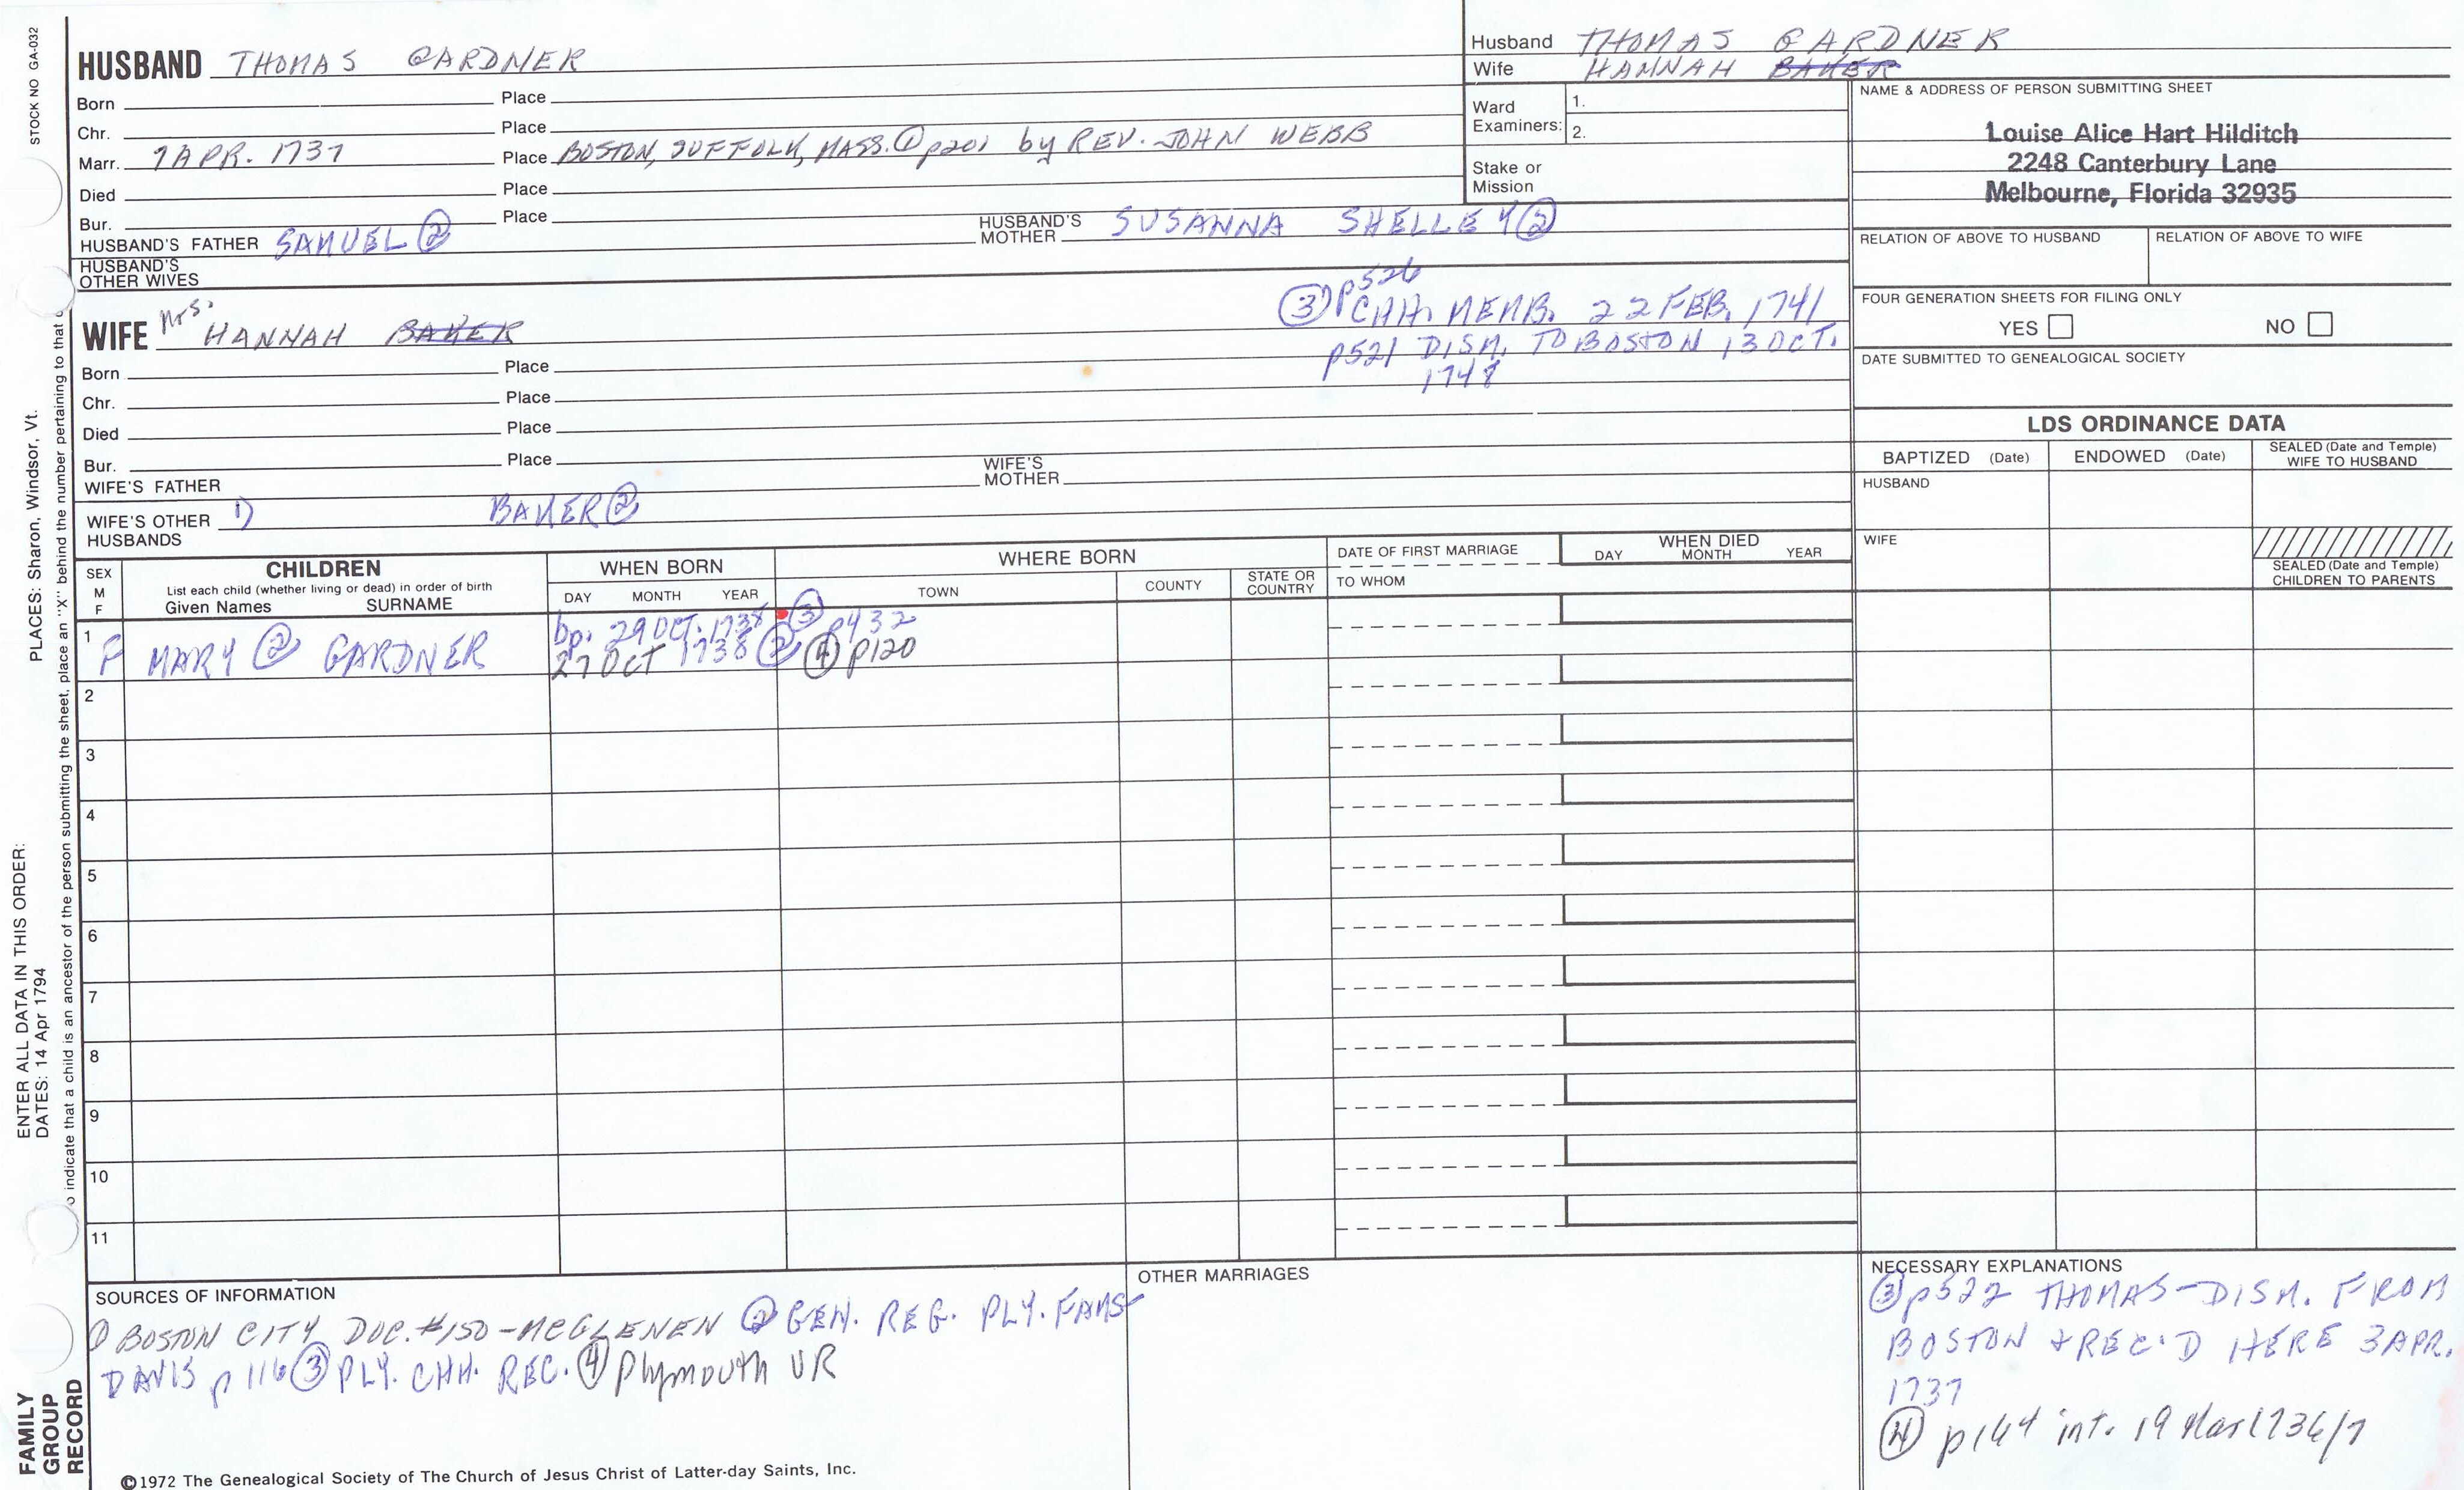 STOCK NO GA-032
PLACES: Sharon, Windsor, Vt.
ENTER ALL DATA IN THIS ORDER:
DATES: 14 Apr 1794
o indicate that a child is an ancestor of the person submitting the sheet, place an "X" behind the number pertaining to that c
FAMILY
GROUP
RECORD
HUSBAND THOMAS GARDNER
Born Place
Chr. Place
Marr. 7 APR. 1737 Place BOSTON, SUFFOLK, MASS. ① p201 by REV. JOHN WEBB
Died Place
Bur. Place
HUSBAND'S FATHER SAMUEL ② HUSBAND'S MOTHER SUSANNA SHELLEY ②
HUSBAND'S
OTHER WIVES
WIFE Mrs. HANNAH BAKER
③ p526
CHH. MEMB. 22 FEB. 1741
p521 DISM. TO BOSTON 13 OCT.
1748
Born Place
Chr. Place
Died Place
Bur. Place
WIFE'S FATHER WIFE'S MOTHER
WIFE'S OTHER HUSBANDS 1) BAKER ②
Husband THOMAS GARDNER
Wife HANNAH BAKER
Ward
Examiners: 1.
2.
Stake or
Mission
NAME & ADDRESS OF PERSON SUBMITTING SHEET
Louise Alice Hart Hilditch
2248 Canterbury Lane
Melbourne, Florida 32935
RELATION OF ABOVE TO HUSBAND RELATION OF ABOVE TO WIFE
FOUR GENERATION SHEETS FOR FILING ONLY
YES NO
DATE SUBMITTED TO GENEALOGICAL SOCIETY
LDS ORDINANCE DATA
BAPTIZED (Date) ENDOWED (Date) SEALED (Date and Temple)
WIFE TO HUSBAND
HUSBAND
WIFE
SEALED (Date and Temple)
CHILDREN TO PARENTS
SEX
M
F
CHILDREN
List each child (whether living or dead) in order of birth
Given Names SURNAME
WHEN BORN
DAY MONTH YEAR
WHERE BORN
TOWN COUNTY STATE OR COUNTRY
DATE OF FIRST MARRIAGE
TO WHOM
WHEN DIED
DAY MONTH YEAR
bp. 29 OCT. 1738 ③ p432
1 F MARY ② GARDNER 27 Oct 1738 ② ④ p120
2
3
4
5
6
7
8
9
10
11
SOURCES OF INFORMATION
① BOSTON CITY DOC. #150 - MCGLENEN ② GEN. REG. PLY. FAMS
DAVIS p 116 ③ PLY. CHH. REC. ④ Plymouth VR
OTHER MARRIAGES
NECESSARY EXPLANATIONS
③ p522 THOMAS - DISM. FROM
BOSTON + REC'D HERE 3 APR.
1737
④ p164 int. 19 Mar 1736/7
©1972 The Genealogical Society of The Church of Jesus Christ of Latter-day Saints, Inc.